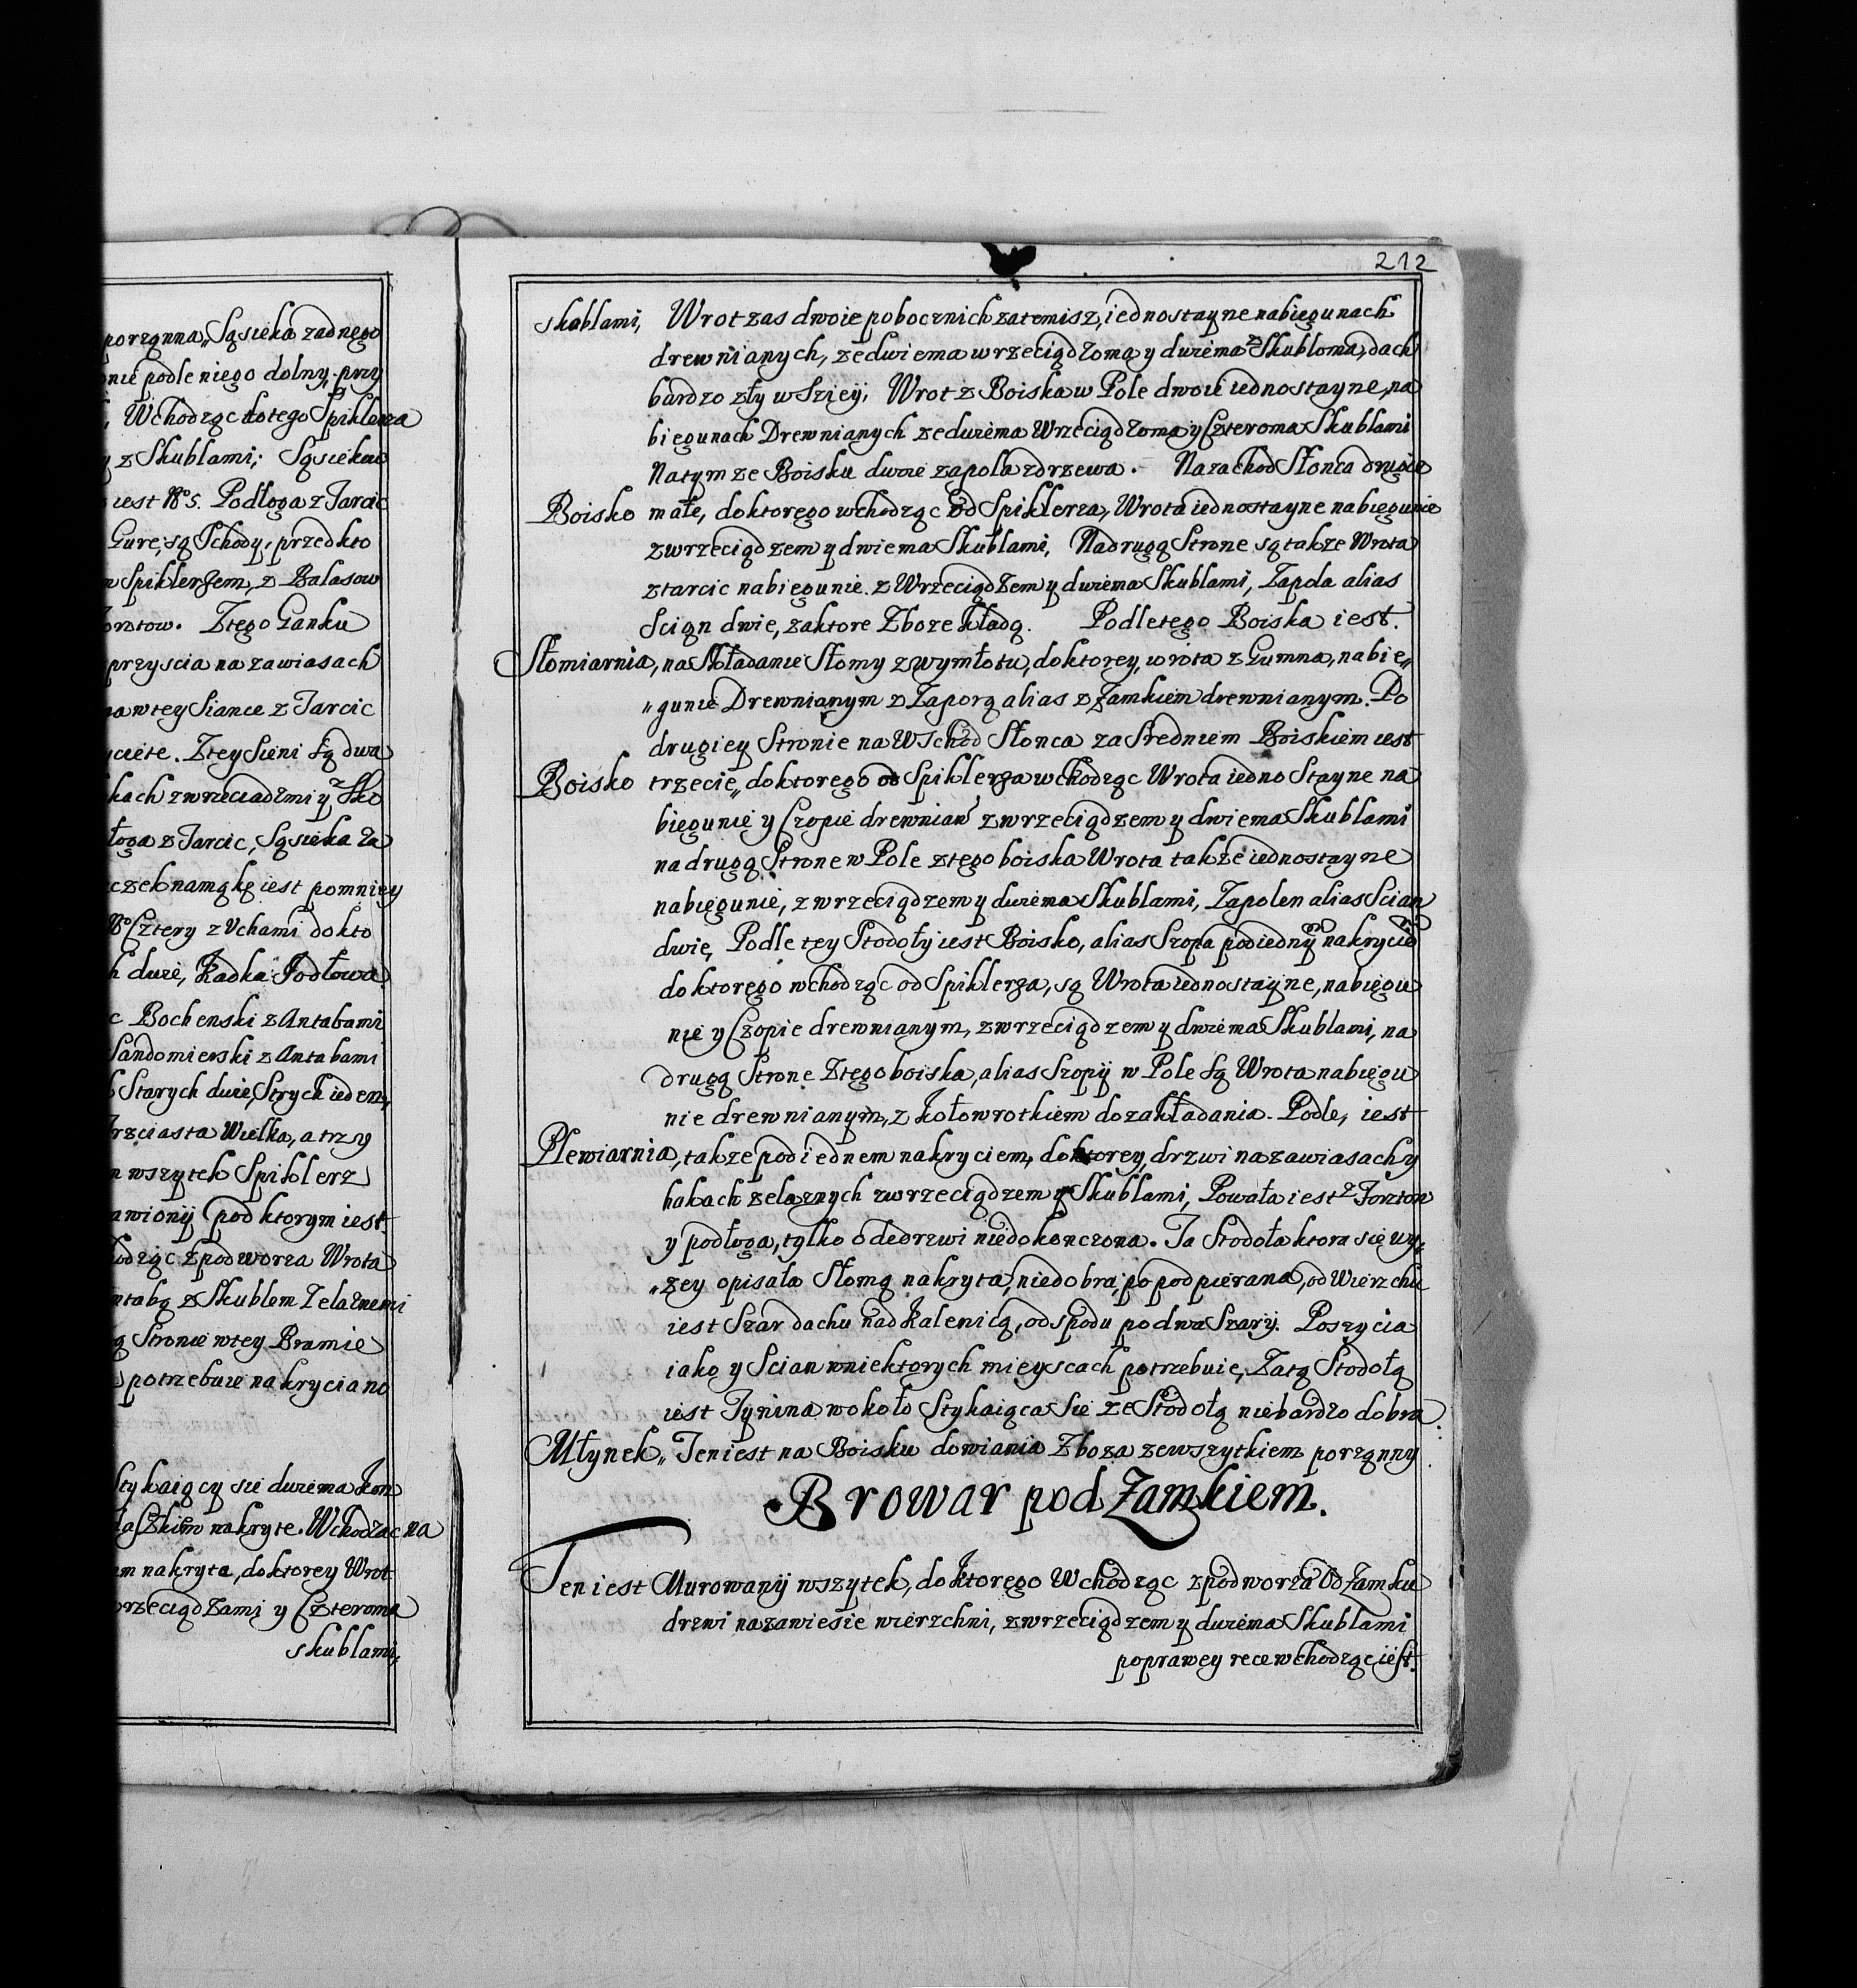 porzqnna„ Sąsieka zadnego
podle niego dolny, przy
Wchodząc do tego Spiklerza
z Skublami; Sąsiekow
iest No 5. Podloga z Tarcic
Gure, są Schody, przed kto
Spiklerzem, z Balasow
Ztego Ganku
przyscia na zawiasach
wtey Siance z Tarcic
Ztey Sieni są dwa
z wrzeciadzmi y z Sko
z Tarcic, Sąsieka za
na mąkę iest pomnizy
No Cztery z Vchami do kto
duże, Kadka Jodłowa
Bochenski z Antabami
Sandomierski z Antabami
Starych dwie, Strych ieden,
Wielka, a trzy
wszytek Spiklerz
pod ktorym iest
z podworza Wrota
z Skublem Zelaznemi
Stronie wtey Bramie
potrzebuie nakrycia no
Stykaiący sie dwiema Kon
nakryte. Wchodząc na
nakryta, do ktorey Wrot
y Czteroma
skublami,
212
skublami, Wrot zas dwoie pobocznich zatemisz, iednostayne na biegunach
drewnianych, ze dwiema wrzeciądzoma y dwiema z Skubloma, dach
bardzo zły w Sziey; Wrot z Boiska w Pole dwoie iednostayne, na
biegunach Drewnianych ze dwiema Wrzeciądzoma y Czteroma Skublami
Na tym ze Boisku dwoie zapola z drzewa. Na zachod Słonca drugie
Boisko małe, do ktorego wchodząc od Spiklerza, Wrota iednostayne na biegunie
z wrzeciądzem y dwiema Skublami, Na drugą Strone są takze Wrota
z tarcic na biegunie z Wrzeciądzem y dwiema Skublami, Zapola alias
Scian dwie, za ktore Zboze kładą. Podle tego Boiska iest.
Słomiarnia, na Składanie Słomy z wymłotu, do ktorey, wrota z Gumna, na bie„
„gunie Drewnianym z Zaporą alias z Zamkiem drewnianym. Po
drugiey Stronie na Wschod Słonca za Srednim Boiskiem iest
Boisko trzecie„ do ktorego od Spiklerza wchodząc Wrota iedno Stayne na
biegunie y Czopie drewnian z wrzeciądzem y dwiema Skublami
na drugą Strone w Pole z tego boiska Wrota takze iednostayne
na biegunie, z wrzeciądzem y dwiema Skublami, Zapolen alias Scian
dwie, Podle tey Stodoły iest Boisko, alias Szopa pod iednym nakryciem
do ktorego wchodząc od Spiklerza, są Wrota iednostayne, na biegu
nie y Czopie drewnianym, z wrzeciądzem y dwiema Skublami, na
drugą Strone Ztego boiska, alias Szopy w Pole są Wrota na biegu
nie drewnianym, z kołowrotkiem do zakładania. Podle, iest
Plewiarnia, takze pod iednem nakryciem, do ktorey, drzwi na zawiasach y
hakach zelaznych z wrzeciądzem y Skublami, Powała iest z Forztow
y podłoga, tylko ode drzwi niedokonczona. Ta Stodoła ktora się wy„
„zey opisała Słomą nakryta, niedobra, popodpierana, od Wierzchu
iest Szar dachu nad Kalenicą, od spodu po dwa Szary. Poszycia
iako y Scian w niektorych mieyscach potrzebuie, Za tą Stodołą
iest Tynina wokoło Stykaiąca Sie ze Stodołą niebardzo dobra.
Młynek„ Ten iest na Boisku do wiania Zboza ze wszytkiem porządny
Browar pod Zamkiem.
Ten iest Murowany wszytek, do ktorego Wchodząc z podworza Od Zamku
drzwi na zawiesie wierzchni, z wrzeciądzem y dwiema Skublami
po prawey rece wchodząc iest.